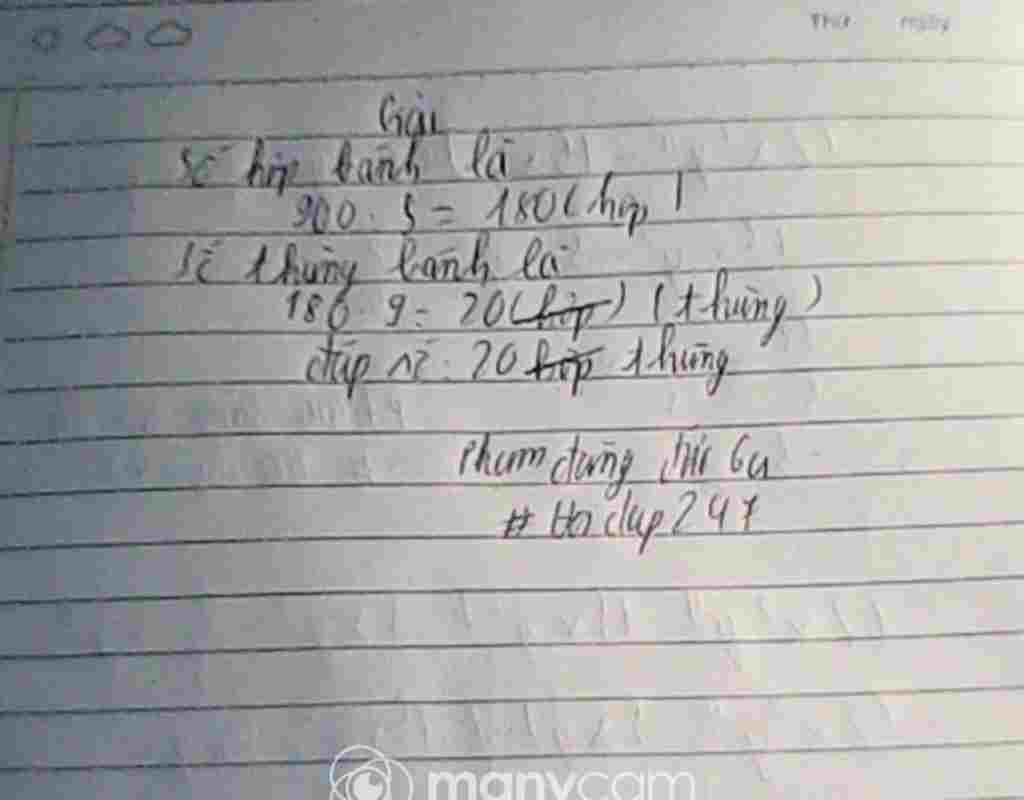 Thứ ngày
Giải
Số hộp bánh là
900 : 5 = 180 ( hộp )
Số thùng bánh là
180 : 9 = 20 (hộp) (thùng)
đáp số : 20 hộp thùng
#Hoidap247
manycam